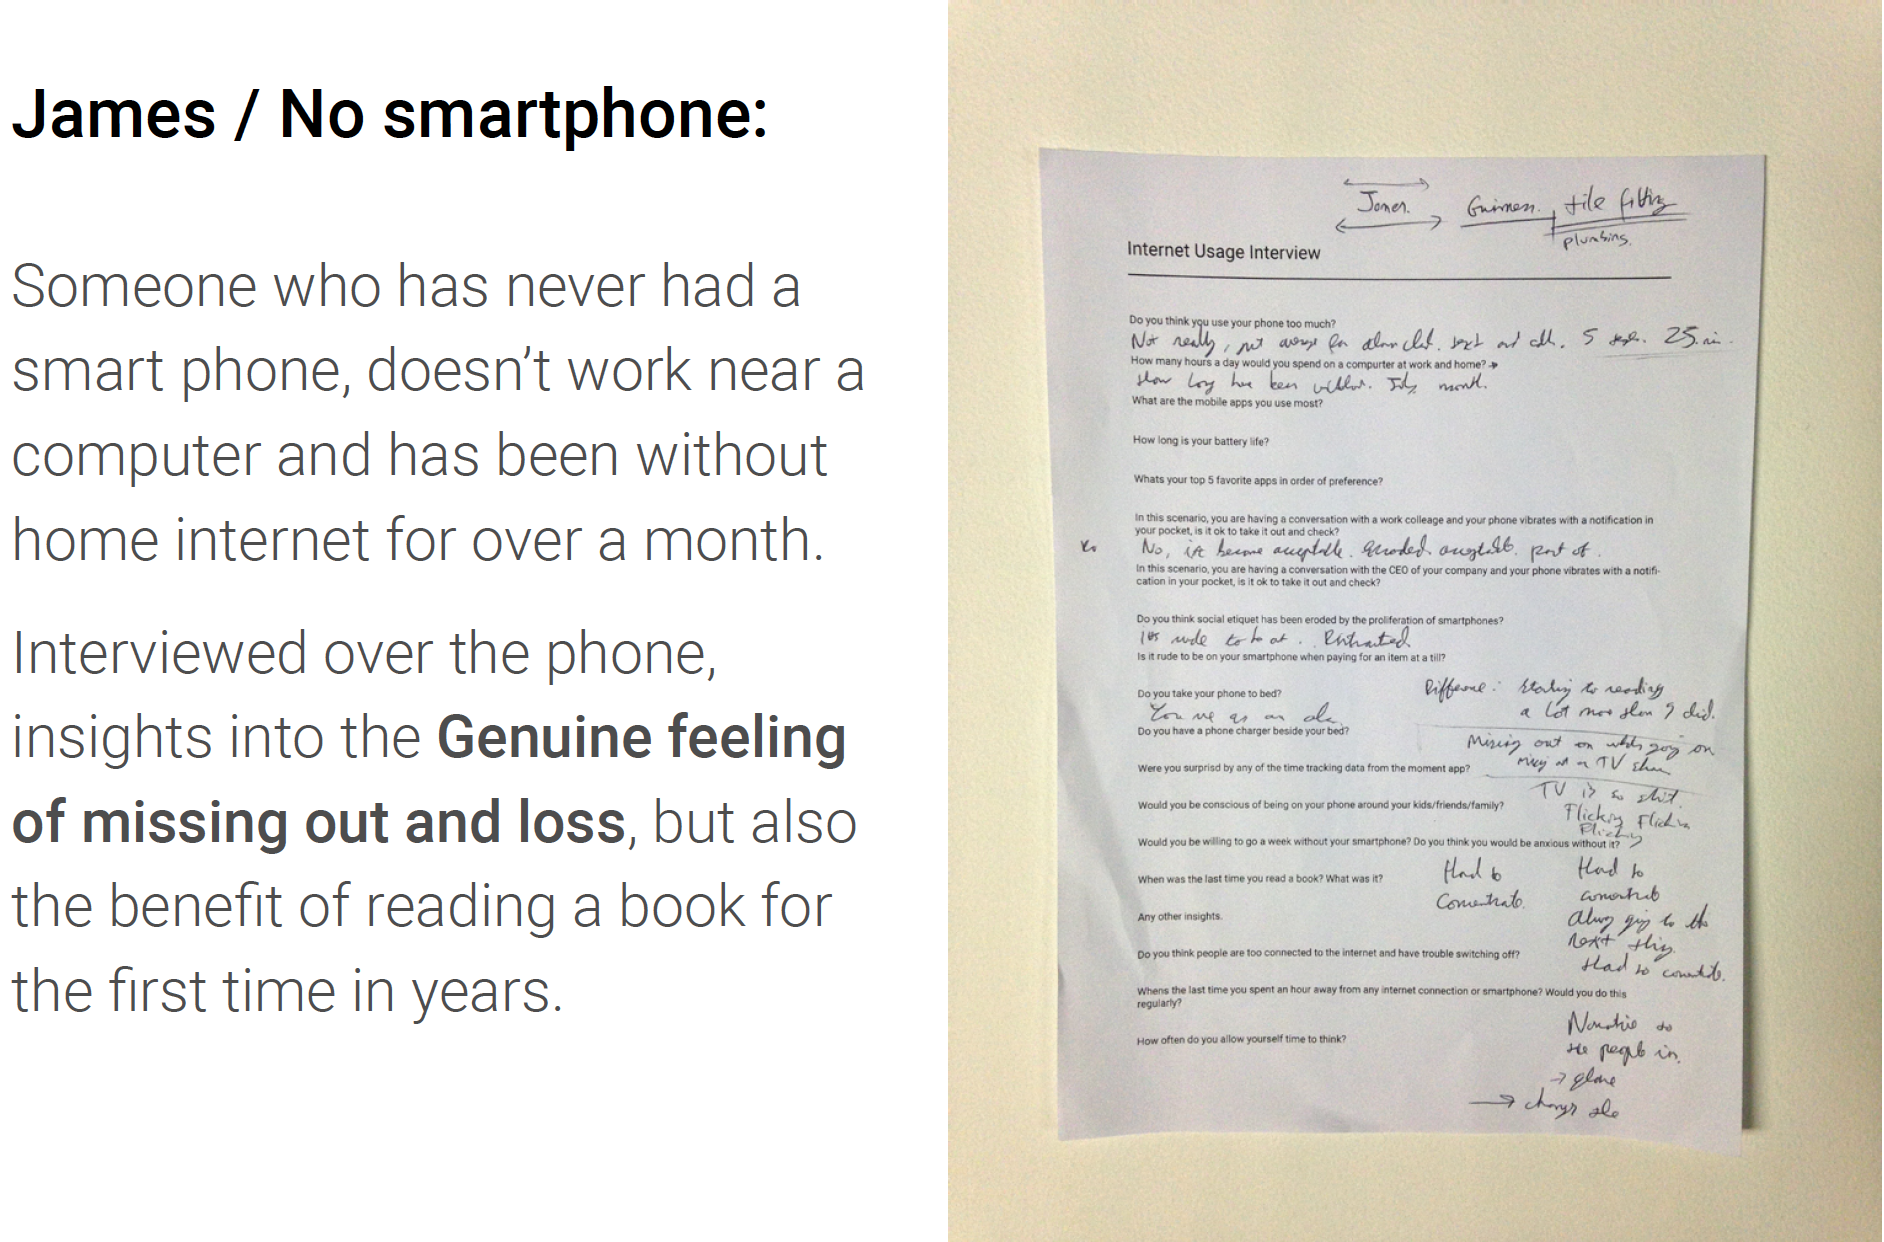 James / No smartphone:
Someone who has never had a
smart phone, doesn’t work near a
computer and has been without
home internet for over a month.
Interviewed over the phone,
insights into the Genuine feeling
of missing out and loss, but also
the benefit of reading a book for
the first time in years.
James. Guinness. tile fitting
plumbing.
Internet Usage Interview
Do you think you use your phone too much?
Not really, text and 5 25.
How many hours a day would you spend on a compurter at work and home?
long been July month.
What are the mobile apps you use most?
How long is your battery life?
Whats your top 5 favorite apps in order of preference?
In this scenario, you are having a conversation with a work colleage and your phone vibrates with a notification in
your pocket, is it ok to take it out and check?
No, its become acceptable. part of.
In this scenario, you are having a conversation with the CEO of your company and your phone vibrates with a notifi-
cation in your pocket, is it ok to take it out and check?
Do you think social etiquet has been eroded by the proliferation of smartphones?
rude to
Is it rude to be on your smartphone when paying for an item at a till?
Do you take your phone to bed?
Do you have a phone charger beside your bed?
Difference: Starting to reading
a lot more than I did.
Missing out on whats going on
TV
Were you surprisd by any of the time tracking data from the moment app?
TV is so shit.
Would you be conscious of being on your phone around your kids/friends/family?
Flicking Flicking
Flicking
Would you be willing to go a week without your smartphone? Do you think you would be anxious without it?
When was the last time you read a book? What was it?
Hard to
Concentrate.
Hard to
concentrate
Any other insights.
Always going to the
next thing.
Do you think people are too connected to the internet and have trouble switching off?
Hard to concentrate.
Whens the last time you spent an hour away from any internet connection or smartphone? Would you do this
regularly?
How often do you allow yourself time to think?
people in.